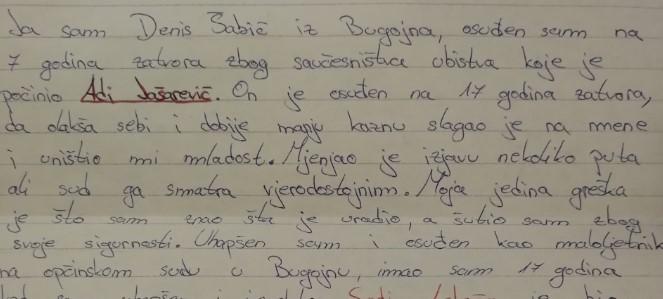 Ja sam Denis Šabić iz Bugojna, osuđen sam na
7 godina zatvora zbog saučesništva ubistva koje je
počinio Adi Jašarević. On je osuđen na 17 godina zatvora,
da olakša sebi i dobije manju kaznu slagao je na mene
i uništio mi mladost. Mjenjao je izjavu nekoliko puta
ali sud ga smatra vjerodostojnim. Moja jedina greška
je što sam znao šta je uradio, a šutio sam zbog
svoje sigurnosti. Uhapšen sam i osuđen kao maloljetnik
na općinskom sudu u Bugojnu, imao sam 17 godina